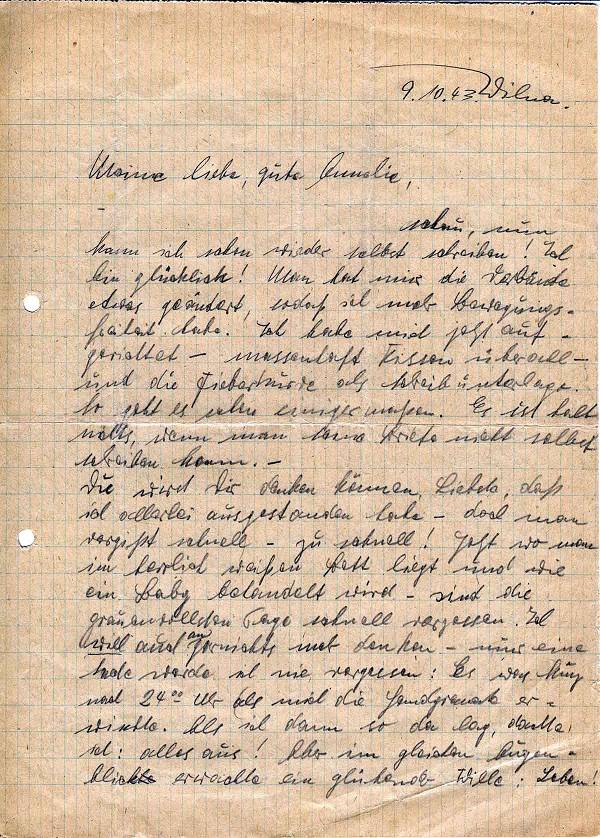 9.10.43. Wilna.
Meine liebe, gute Annelie,
schau, nun
kann ich schon wieder selbst schreiben! Ich
bin glücklich! Man hat mir die
etwas geändert, sodaß ich mehr Bewegungs-
freiheit habe. Ich habe mich jetzt auf-
gerichtet – massenhaft Kissen überall –
und die Fieberkurve als Schreibunterlage.
So geht es schon einigermaßen. Es ist halt
nichts, wenn man seine Briefe nicht selbst
schreiben kann. –
Du wirst Dir denken können, Liebste, daß
ich allerlei ausgestanden habe – doch man
vergißt schnell – zu schnell! Jetzt wo man
im herrlich weißen Bett liegt und wie
ein Baby behandelt wird – sind die
grauenvollsten Tage schnell vergessen. Ich
will auch an garnichts mehr denken – nur eine
werde ich nie vergessen: Es war kurz
nach 24⁰⁰ Uhr als mich die Handgranate er-
wischte. Als ich dann so da lag, dachte
ich: alles aus! Aber im gleichen Augen-
blick erwachte ein glühender Wille: Leben!